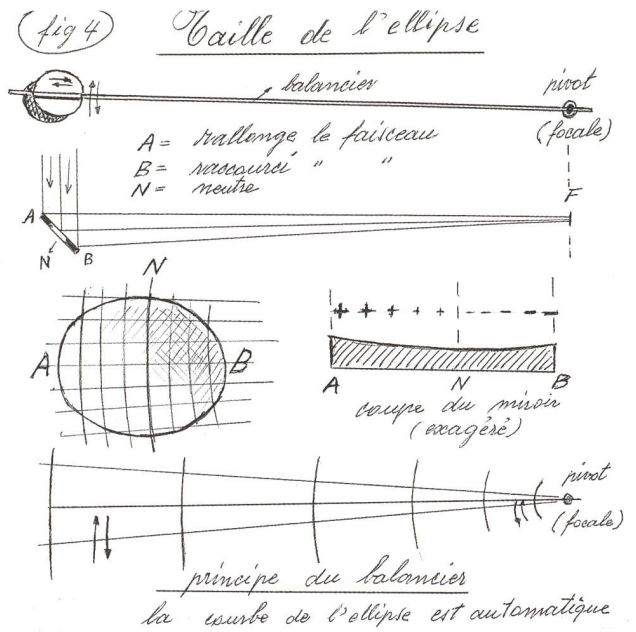 fig 4
Taille de l'ellipse
balancier
pivot
(focale)
A = rallonge le faisceau
B = raccourci " "
N = neutre
F
A
N
B
N
A
B
+ + + + + - - - - - -
A
N
B
coupe du miroir
(exagéré)
pivot
(focale)
principe du balancier
la courbe de l'ellipse est automatique